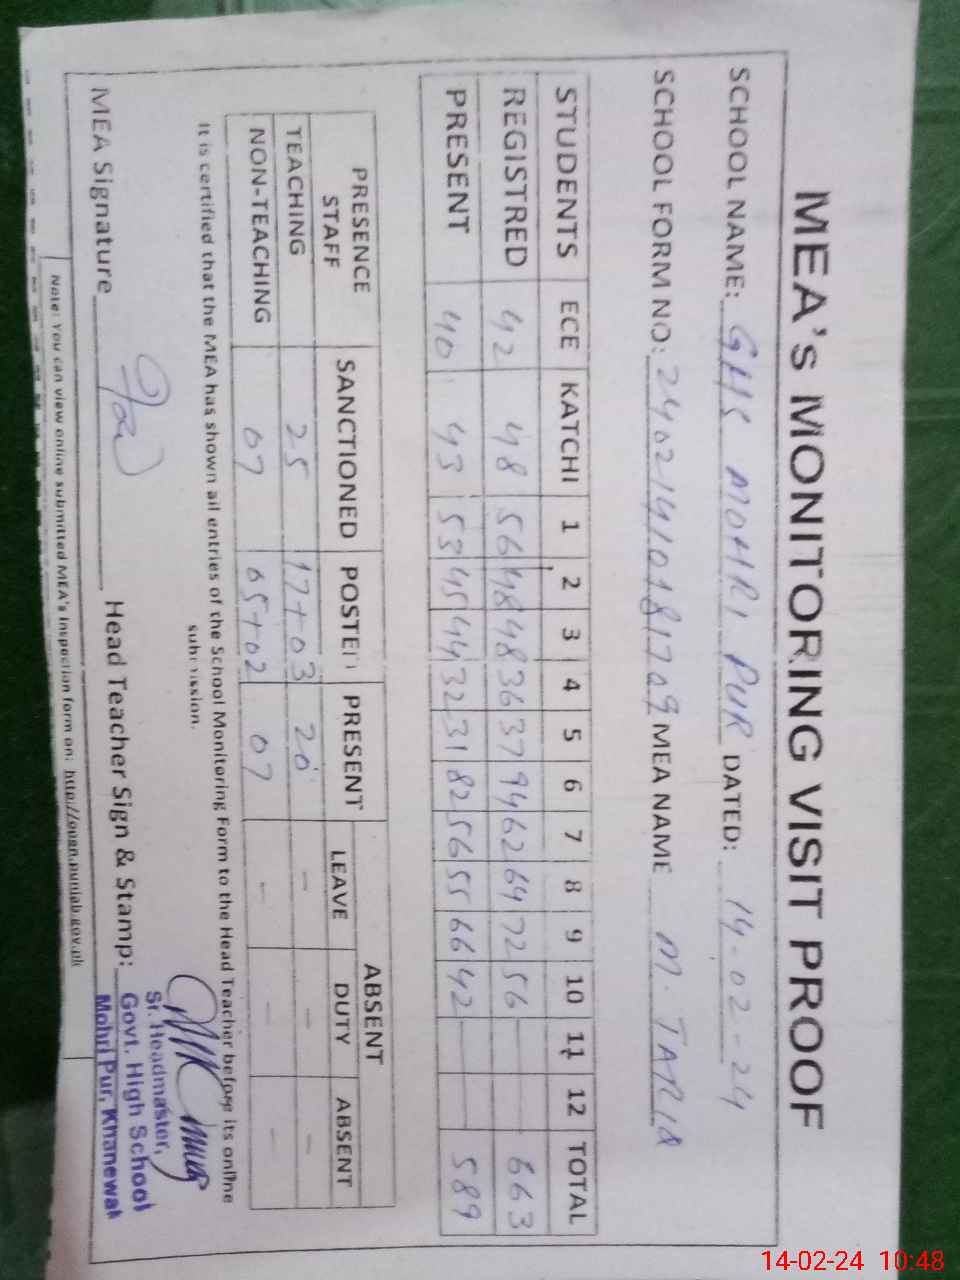 MEA's MONITORING VISIT PROOF
SCHOOL NAME: GHS MOHRI PUR DATED: 14-02-24
SCHOOL FORM NO: MEA NAME M. TARIQ
STUDENTS ECE KATCHI 1 2 3 4 5 6 7 8 9 10 11 12 TOTAL
REGISTRED 42 48 56 48 48 36 37 94 62 64 72 56 663
PRESENT 40 43 53 45 44 32 31 82 56 55 66 42 589
PRESENCE STAFF SANCTIONED POSTED PRESENT ABSENT
LEAVE DUTY ABSENT
TEACHING 25 17+03 20 - - -
NON-TEACHING 07 05+02 07 - - -
It is certified that the MEA has shown all entries of the School Monitoring Form to the Head Teacher before its online
submission.
MEA Signature Head Teacher Sign & Stamp:
Sr. Headmaster,
Govt. High School
Mohri Pur, Khanewal
Note: You can view online submitted MEA's Inspection form on: http://open.punjab.gov.pk
14-02-24 10:48